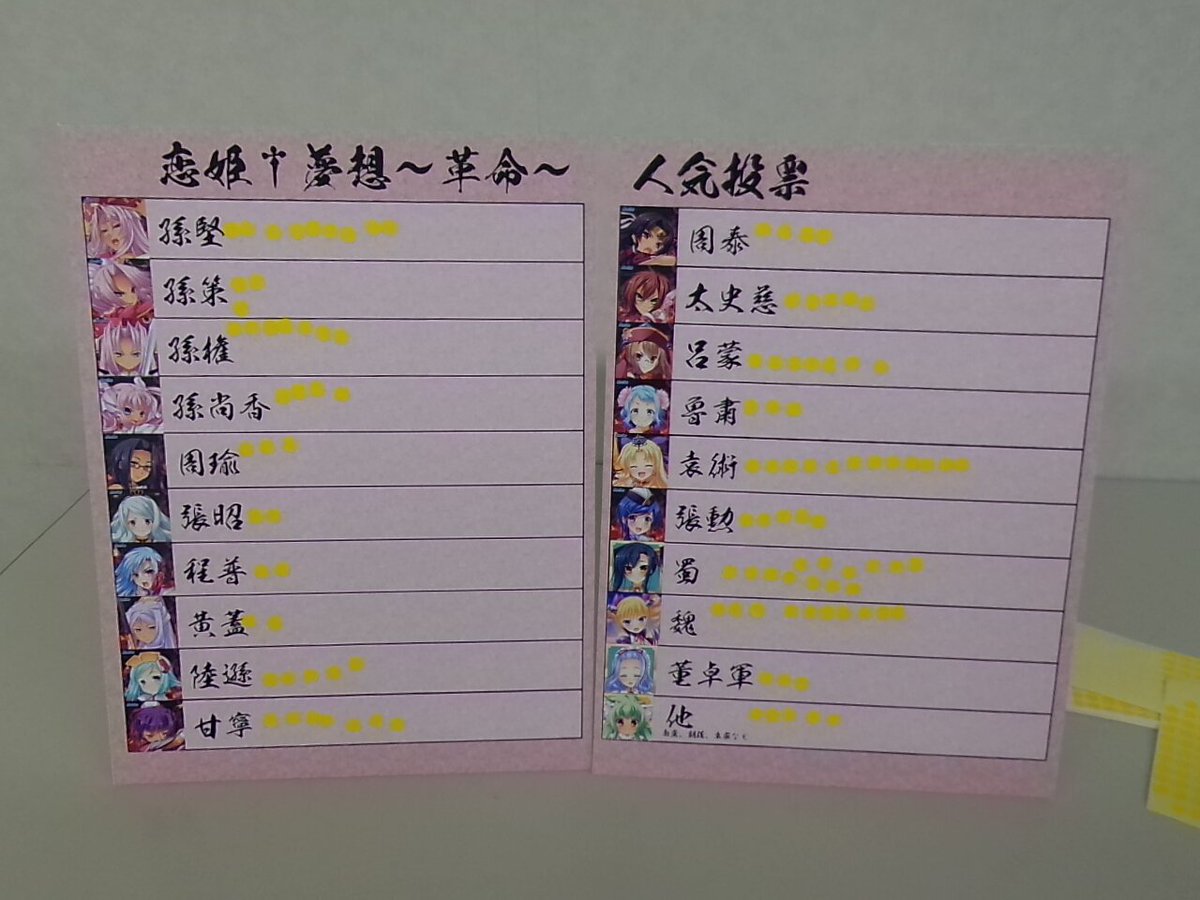 恋姫†夢想～革命～
孫堅
孫策
孫権
孫尚香
周瑜
張昭
程普
黄蓋
陸遜
甘寧
人気投票
周泰
太史慈
呂蒙
魯粛
袁術
張勲
蜀
魏
董卓軍
他